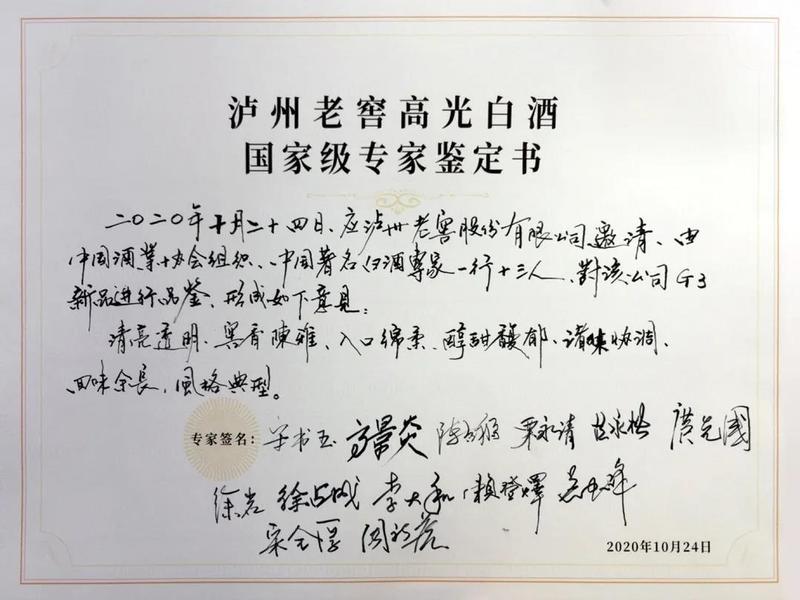 泸州老窖高光白酒
国家级专家鉴定书
二〇二〇年十月二十四日、应泸州老窖股份有限公司邀请、由
中国酒业协会组织、中国著名白酒專家一行十三人、對该公司G3
新品进行品鉴，形成如下意見：
清亮透明、窖香陳雅、入口绵柔、醇甜馥郁、诸味协调、
回味余長，風格典型。
专家签名：宋书玉 高景炎 栗永清 范国琼
徐岩 徐占成 李大和 赖登燡
宋全厚
2020年10月24日